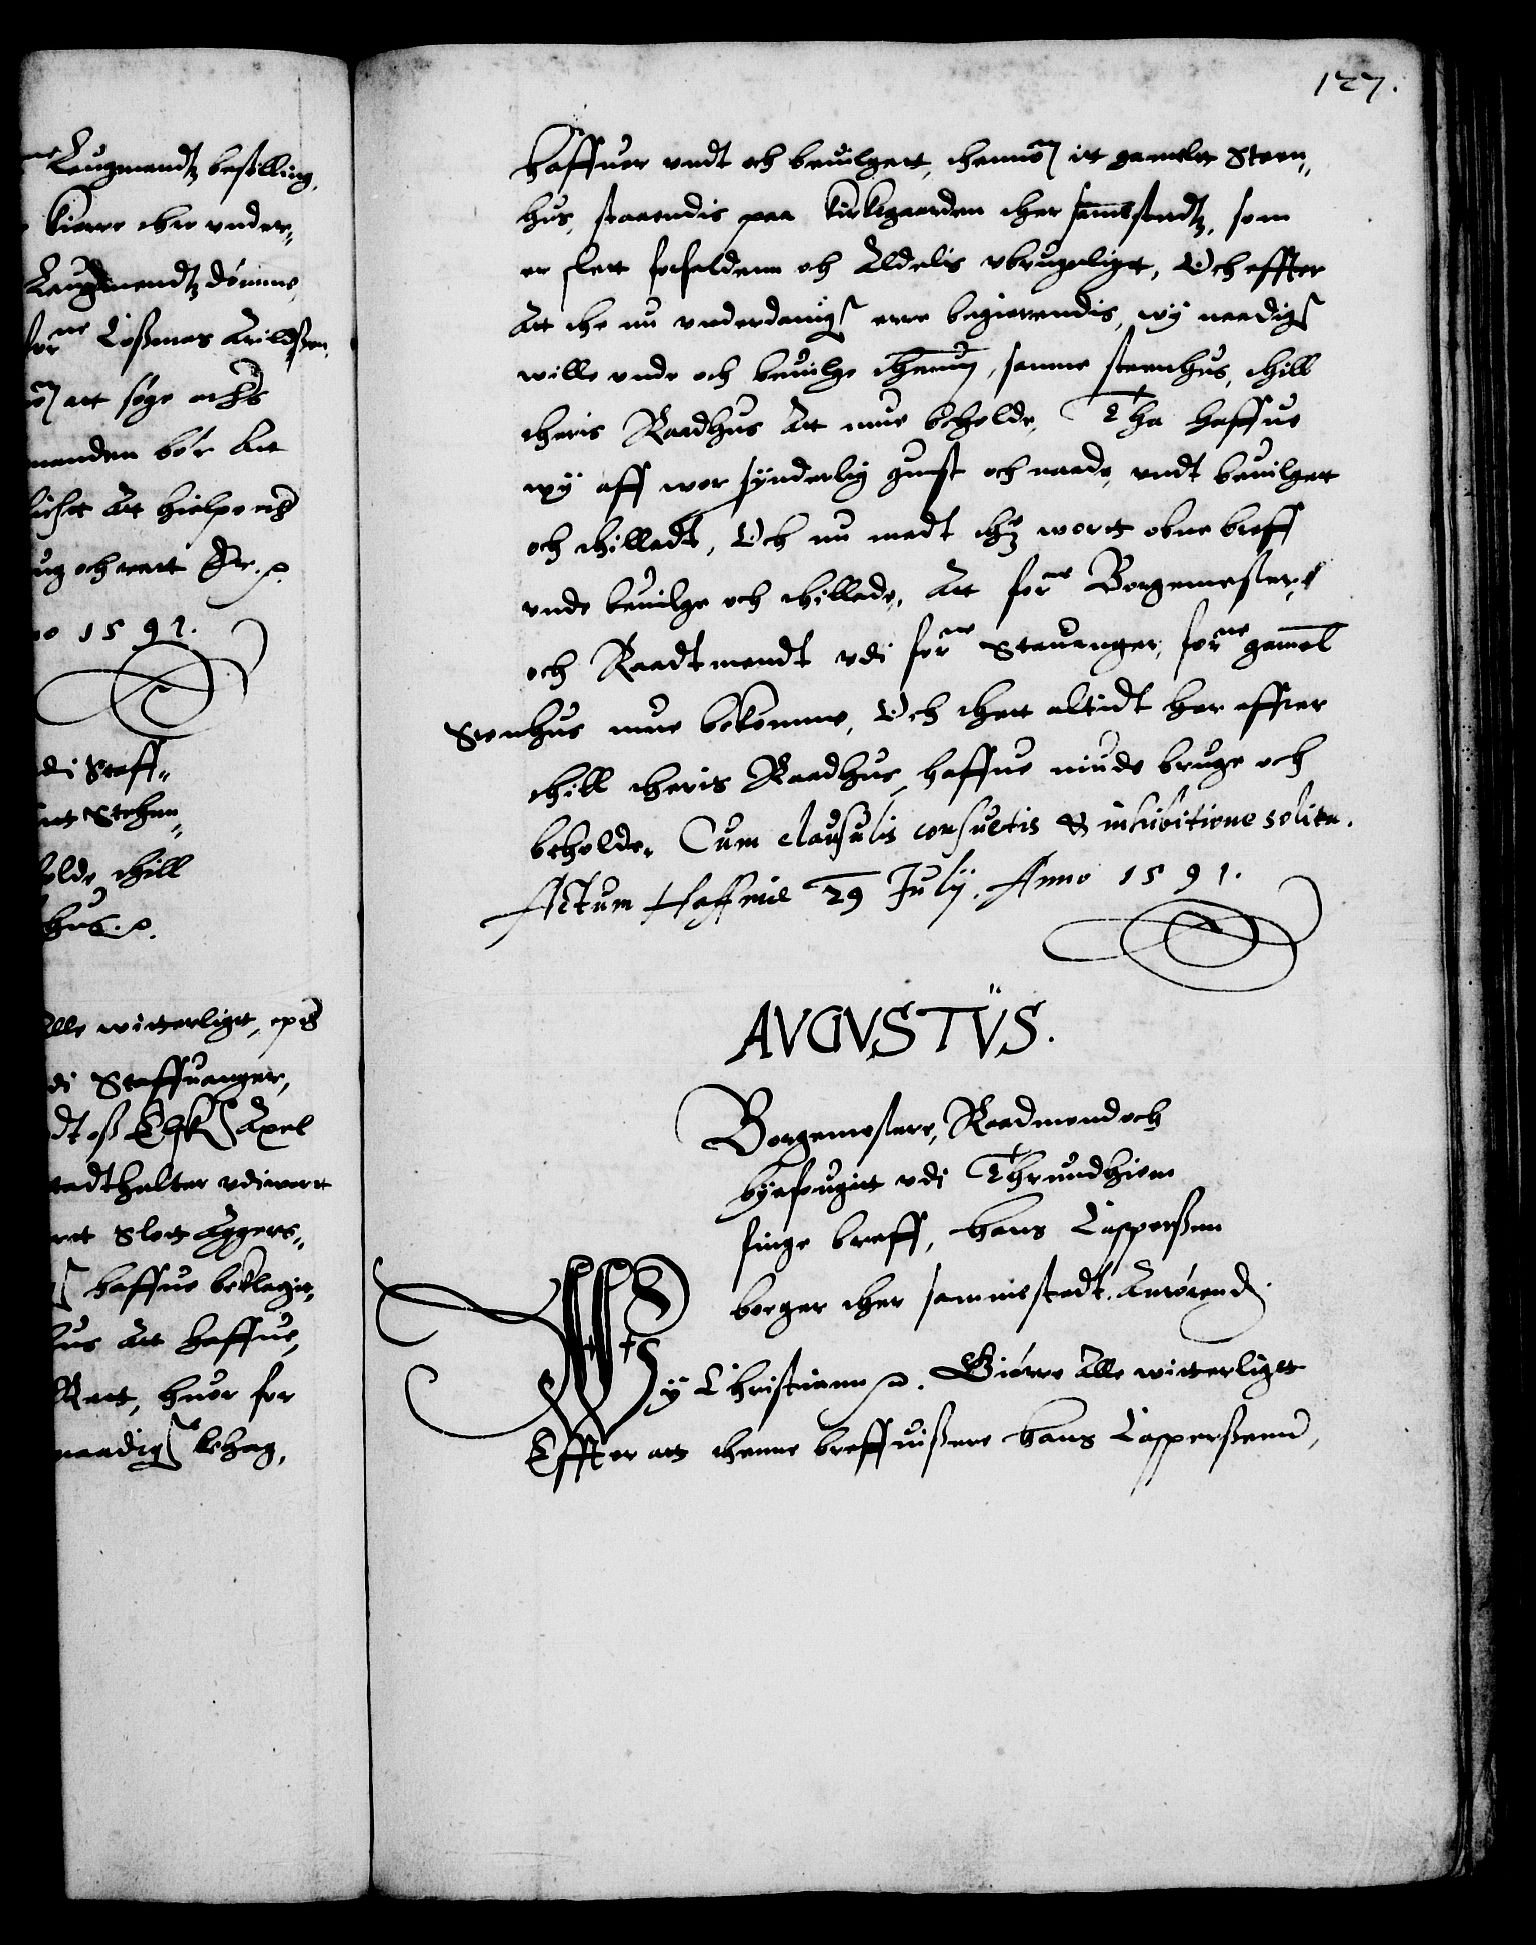 Laugmandtz bestilling,
kierre ther vnder,,
Laugmandtz dömme,
forne Loszmos Arildszen
att söge
manden bör Att
Att hielpe
och rett Etc.
1591.
di Staff,,
Stehen,,
holde thill
hus.
Alle witterligt,
di Staffuanger,
dt osz Elsk Axel
stadthalter vdi wort
Slot Aggers,,
haffue beklagit,
hus Att haffue,
Ret, huor for
naadigst behag,
127.
haffuer vndt och beuilgett, thennom itt gamelt Steen,,
hus, staaendis paa kirkegaarden ther sammestedtz, som
er slett forfaldenn och Aldelis vbrugeligt, Och effter
Att the nu vnderdanigst erre begierendis, wij naadigst
wille vnde och beuilge thennom, samme steenhus, thill
theris Raadhus Att mue beholde, Tha haffue
wij aff wor synderlig gunst och naade, vndt beuilget
och thilladt, Och nu medt thz worts obne breff
vnde beuilge och thillade, Att forne Borgemester,
och Raadtmendt vdi forne Stauanger, forne gamel
Stenhus mue bekomme, Och thett altidt her effter
thill theris Raadhus, haffue niude bruge och
beholde, Cum clausulis consuetis & inhibitione solita.
Actum Haffnie 29 Julij. Anno 1591.
AVGVSTVS.
Borgemestere, Raadmend och
byefougitt vdi Thrundhiem
finge breff, Hans Casperszen
borger ther sammestedt. Anrörend.
Wij Christiann. Giörre Alle witterligt
Effter att thenne breffuiszere Hans Casperszenn,